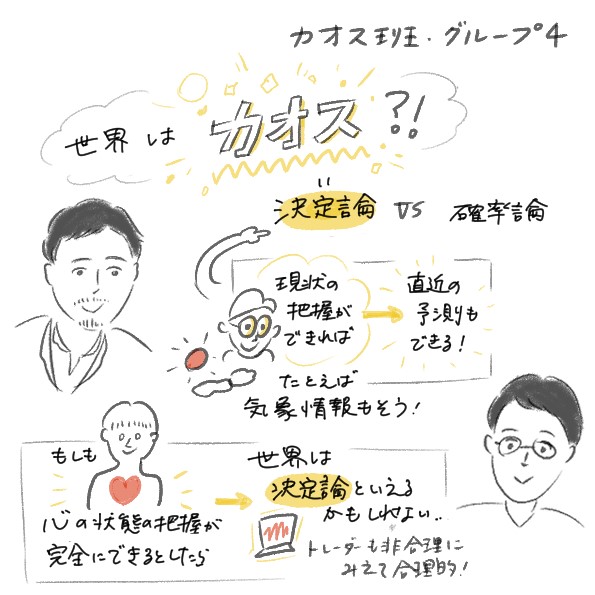 カオス班・グループ4
世界は カオス?!
決定論 VS 確率論
現状の
把握が
できれば
直近の
予測も
できる!
たとえば
気象情報もそう!
もしも
心の状態の把握が
完全にできるとしたら
世界は
決定論といえる
かもしれない..
トレーダーも非合理に
みえて合理的!